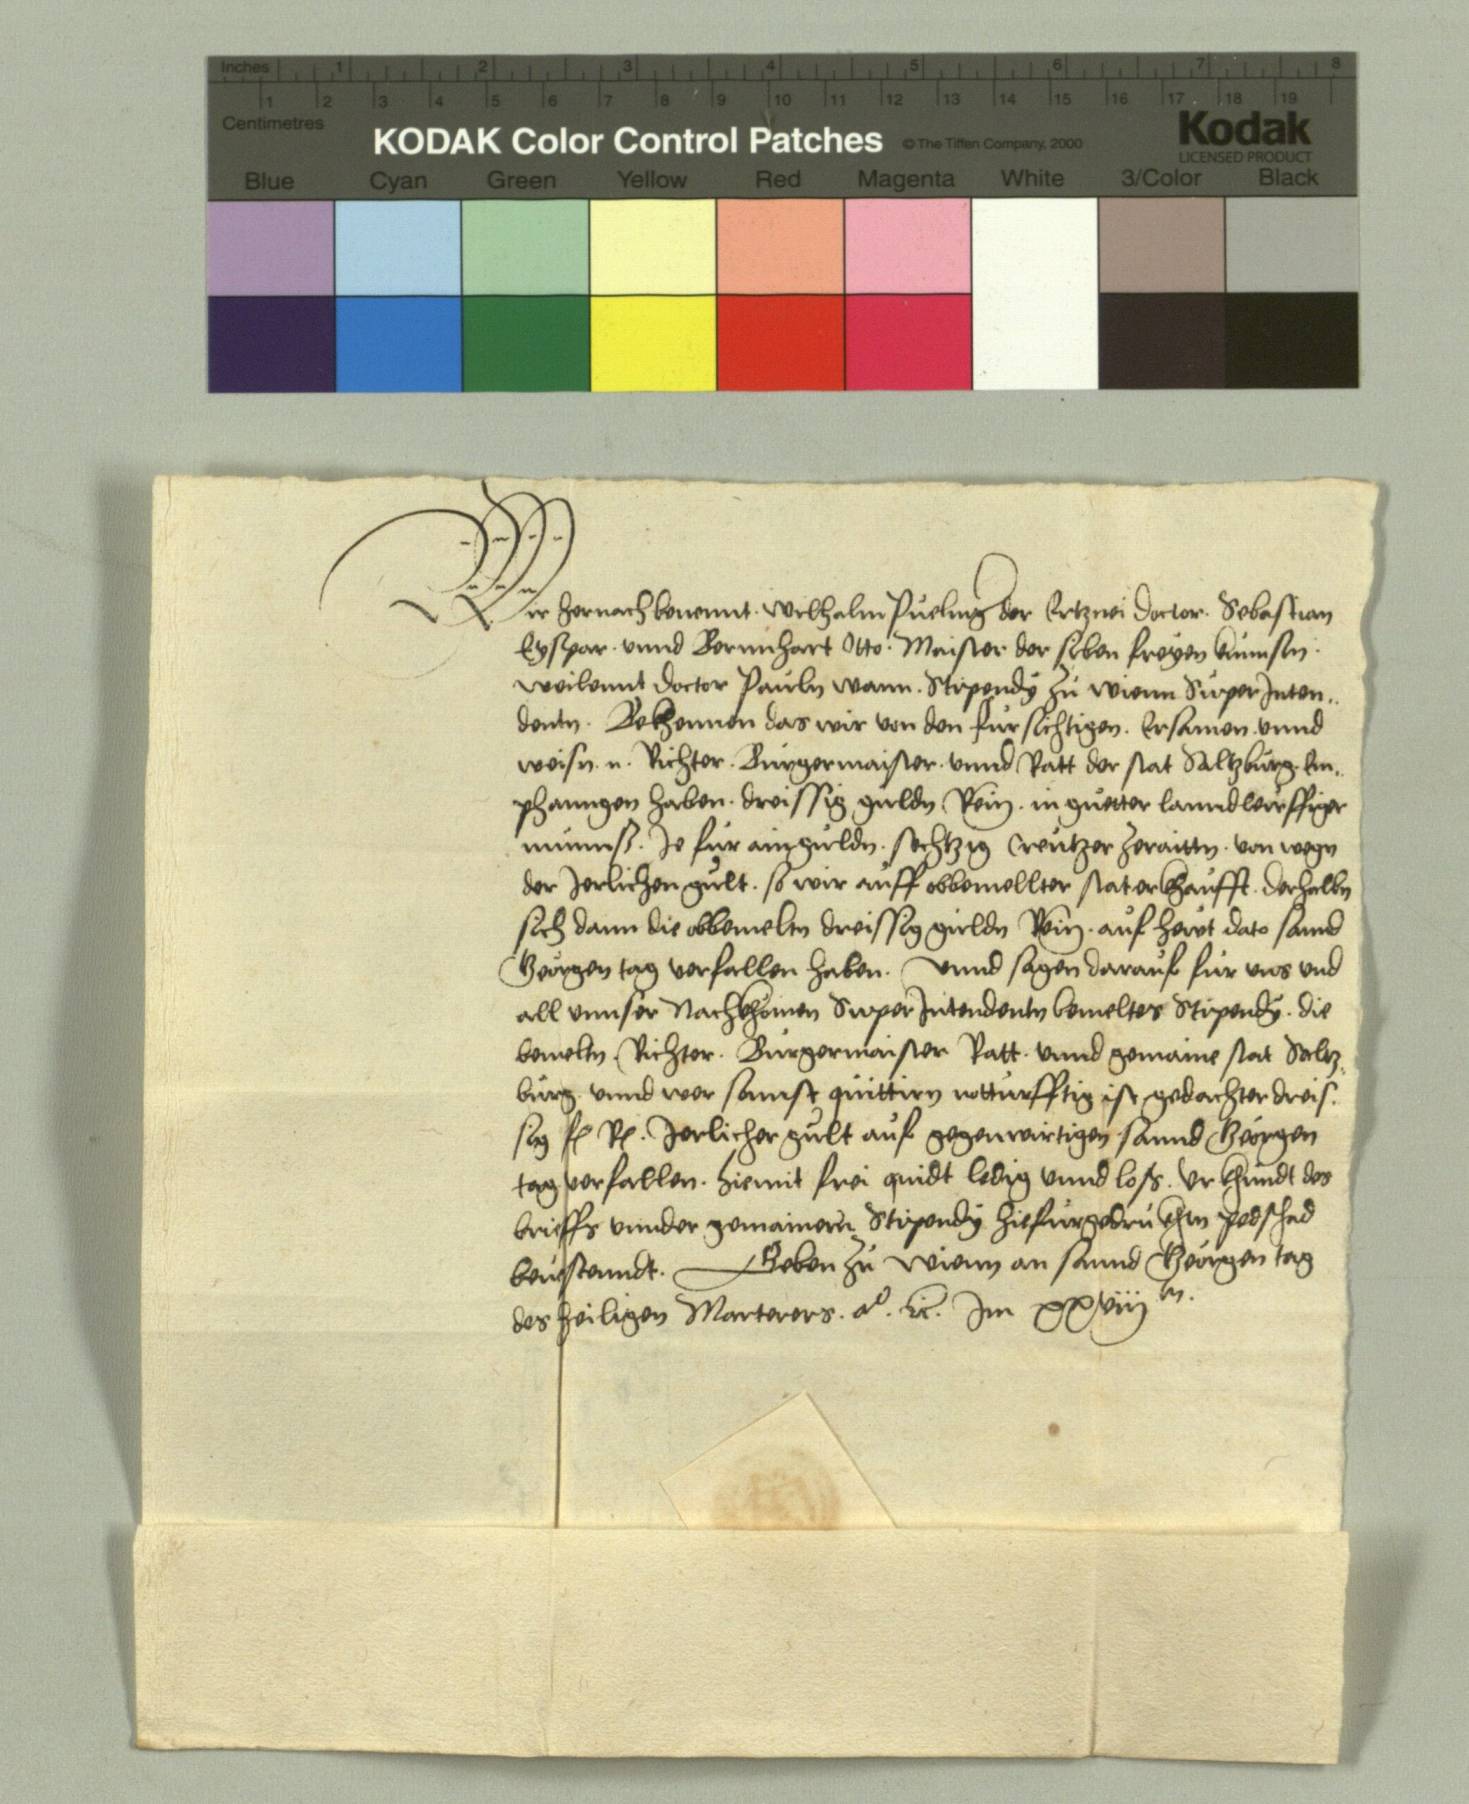 Inches 1 2 3 4 5 6 7 8
1 2 3 4 5 6 7 8 9 10 11 12 13 14 15 16 17 18 19
Centimetres
KODAK Color Control Patches © The Tiffen Company, 2000 Kodak
LICENSED PRODUCT
Blue Cyan Green Yellow Red Magenta White 3/Color Black
Wir hernach benennt. Wilhalm Püeling der Ertznei doctor. Sebastian
Eyspar. vnnd Bernnhart Otto. Maister der siben freyen künnsn.
weilennt doctor Pauln wann. Stipendÿ zú wienn Súper Inten..
dentn. Bekhennen das wir von den fürsichtigen. Ersamen. vnnd
weisn. n. Richter. Búrgermaister. vnnd Ratt der stat Saltzbúrg. Em..
phanngen haben. dreissig guldn Rein. in gúetter lanndleúffiger
múnnß. Je fúr ain guldn. sechtzig Creútzer zeraittn. von wegn
der Jerlichen gúlt. so wir aúff obbemellter stat erkhaúfft. derhalbn
sich dann die obbemeltn dreissig guldn Rein. aúf heút dato sannd
Geörgen tag verfallen haben. Vnnd sagen daraúf fúr vns vnd
all vnnser Nachkhomen Súper Intendentn bemeltes Stipendÿ. die
bemeltn. Richter. Búrgermaister Ratt. vnnd gemaine stat Saltz.
búrg. vnnd wer sonnst qúittirn notturfftig ist gedachter dreis.
sig fl Rl. Jerlicher gúlt aúf gegenwirtigen sannd Geörgen
tag verfallen. hiemit frei quidt ledig vnnd loss. Vrkhúndt des
brieffs vnnder gemainem Stipendÿ hiefúrgedrúkhtn petschad
beuestenndt. Geben zú Wienn an sannd Geörgen tag
des heiligen Marterers. ao. ic. Im xxviiij tn.